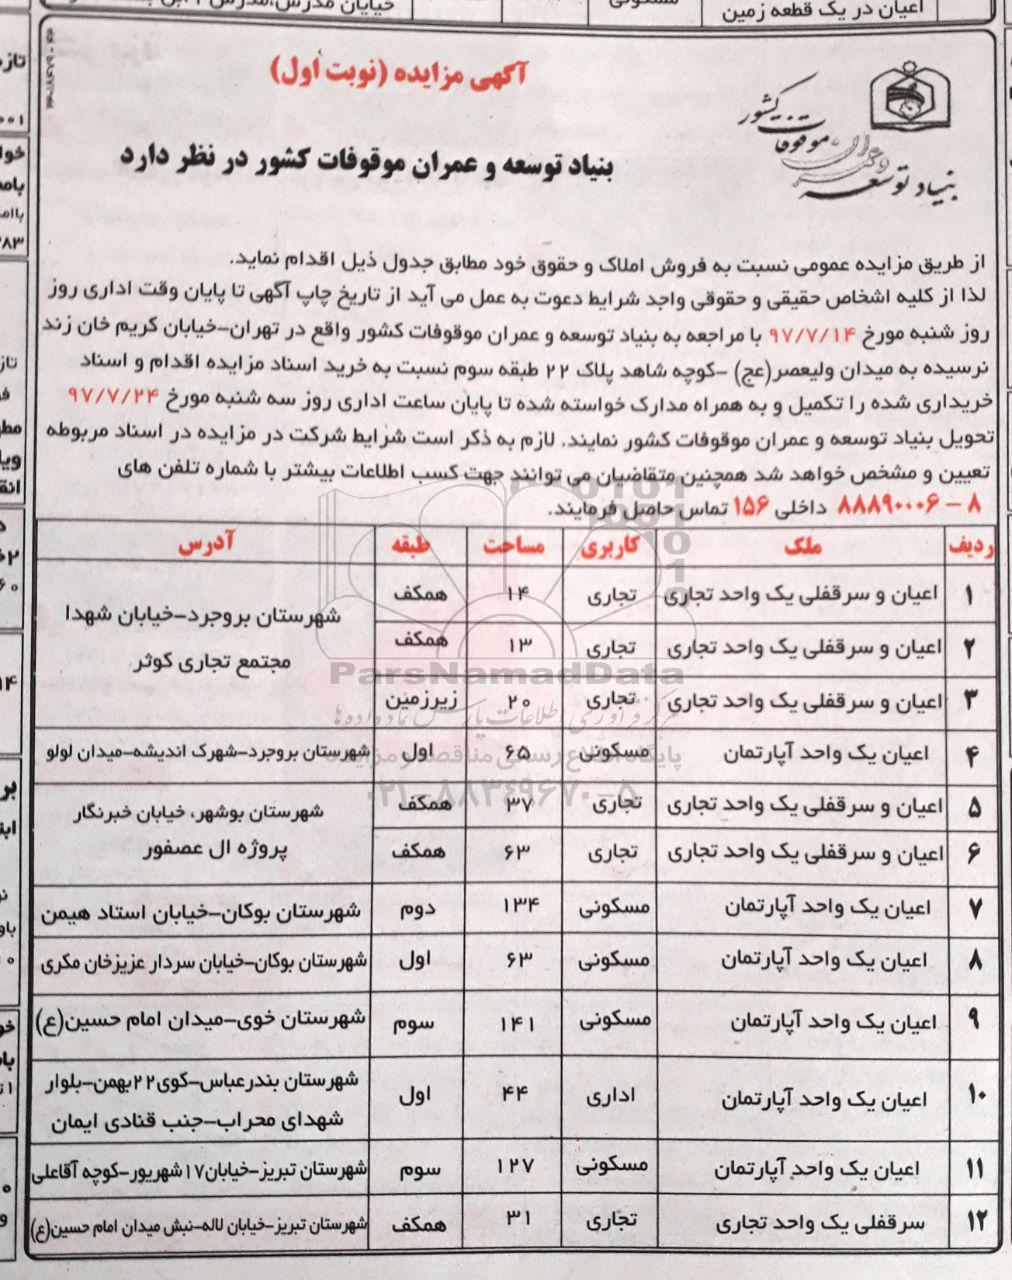 اعیان در یک قطعه زمین
مسکونی
آگهی مزایده (نوبت اول)
بنیاد توسعه و عمران موقوفات کشور
بنیاد توسعه و عمران موقوفات کشور در نظر دارد
از طریق مزایده عمومی نسبت به فروش املاک و حقوق خود مطابق جدول ذیل اقدام نماید.
لذا از کلیه اشخاص حقیقی و حقوقی واجد شرایط دعوت به عمل می آید از تاریخ چاپ آگهی تا پایان وقت اداری روز
روز شنبه مورخ ۹۷/۷/۱۴ با مراجعه به بنیاد توسعه و عمران موقوفات کشور واقع در تهران-خیابان کریم خان زند
نرسیده به میدان ولیعصر(عج) -کوچه شاهد پلاک ۲۲ طبقه سوم نسبت به خرید اسناد مزایده اقدام و اسناد
خریداری شده را تکمیل و به همراه مدارک خواسته شده تا پایان ساعت اداری روز سه شنبه مورخ ۹۷/۷/۲۴
تحویل بنیاد توسعه و عمران موقوفات کشور نمایند. لازم به ذکر است شرایط شرکت در مزایده در اسناد مربوطه
تعیین و مشخص خواهد شد همچنین متقاضیان می توانند جهت کسب اطلاعات بیشتر با شماره تلفن های
۸ - ۸۸۸۹۰۰۰۶ داخلی ۱۵۶ تماس حاصل فرمایند.
ردیف ملک کاربری مساحت طبقه آدرس
۱ اعیان و سرقفلی یک واحد تجاری تجاری ۱۴ همکف شهرستان بروجرد-خیابان شهدا
۲ اعیان و سرقفلی یک واحد تجاری تجاری ۱۳ همکف مجتمع تجاری کوثر
۳ اعیان و سرقفلی یک واحد تجاری تجاری ۲۰ زیرزمین
۴ اعیان یک واحد آپارتمان مسکونی ۶۵ اول شهرستان بروجرد-شهرک اندیشه-میدان لولو
۵ اعیان و سرقفلی یک واحد تجاری تجاری ۳۷ همکف شهرستان بوشهر، خیابان خبرنگار
۶ اعیان و سرقفلی یک واحد تجاری تجاری ۶۳ همکف پروژه ال عصفور
۷ اعیان یک واحد آپارتمان مسکونی ۱۳۴ دوم شهرستان بوکان-خیابان استاد هیمن
۸ اعیان یک واحد آپارتمان مسکونی ۶۳ اول شهرستان بوکان-خیابان سردار عزیزخان مکری
۹ اعیان یک واحد آپارتمان مسکونی ۱۴۱ سوم شهرستان خوی-میدان امام حسین(ع)
۱۰ اعیان یک واحد آپارتمان اداری ۴۴ اول شهرستان بندرعباس-کوی۲۲بهمن-بلوار
شهدای محراب-جنب قنادی ایمان
۱۱ اعیان یک واحد آپارتمان مسکونی ۱۲۷ سوم شهرستان تبریز-خیابان۱۷شهریور-کوچه آقاعلی
۱۲ سرقفلی یک واحد تجاری تجاری ۳۱ همکف شهرستان تبریز-خیابان لاله-نبش میدان امام حسین(ع)
ParsNamadData
مرکز فرآوری اطلاعات پارس نماد داده ها
پایگاه اطلاع رسانی مناقصه و مزایده
۰۲۱-۸۸۳۴۹۶۷۰-۵